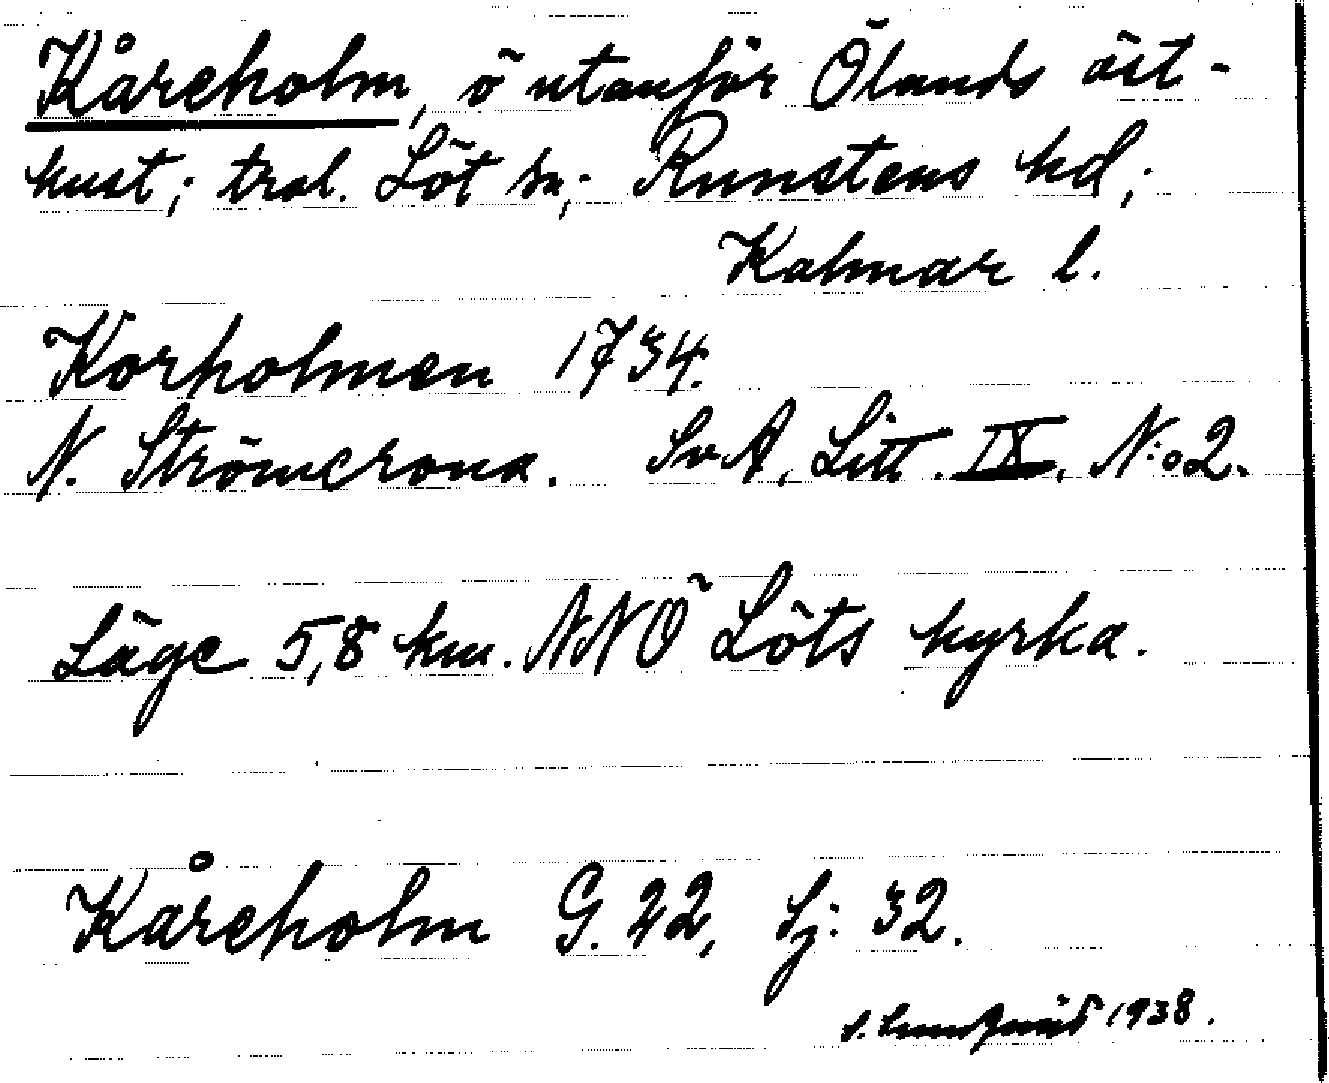 Kåreholm, ö utanför Ölands öst-
kust; trol. Löt sn; Runstens hd;
Kalmar l.
Korholmen 1734.
N. Strömcrona. SvA, Litt. IX, N:o 2.
Läge 5,8 km. NNÖ Löts kyrka.
Kåreholm G. 22, Sj: 32.
S. Lundqvist 1938.